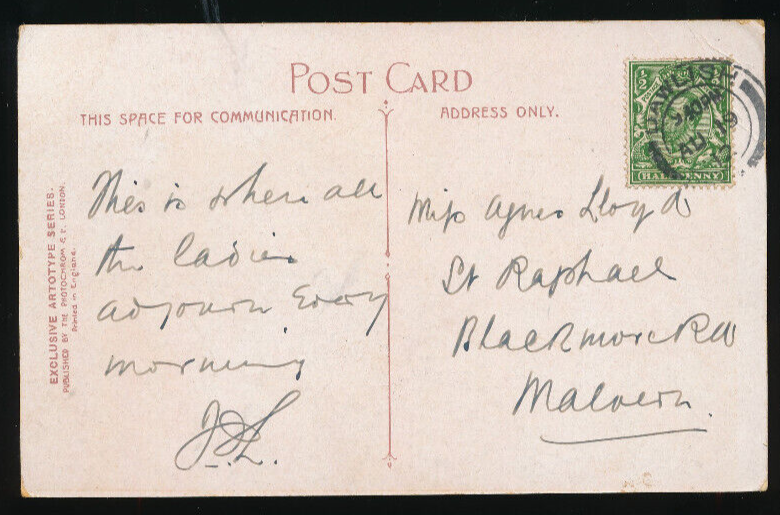 POST CARD
THIS SPACE FOR COMMUNICATION.
ADDRESS ONLY.
EXCLUSIVE ARTOTYPE SERIES.
PUBLISHED BY THE PHOTOCHROM Co. Ld. LONDON.
Printed in England.
This is where all
the ladies
adjourn Every
morning
Miss Agnes Lloyd
St Raphael
Blackmore Rd
Malvern.
½
HALFPENNY
DAWLISH
AU 19
12